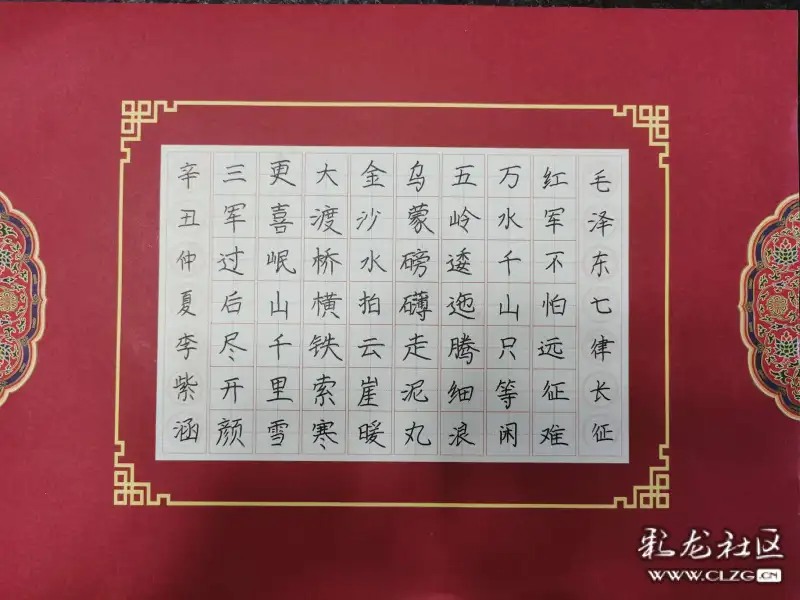 毛泽东七律长征
红军不怕远征难
万水千山只等闲
五岭逶迤腾细浪
乌蒙磅礴走泥丸
金沙水拍云崖暖
大渡桥横铁索寒
更喜岷山千里雪
三军过后尽开颜
辛丑仲夏李紫涵
彩龙社区
WWW.CLZG.CN